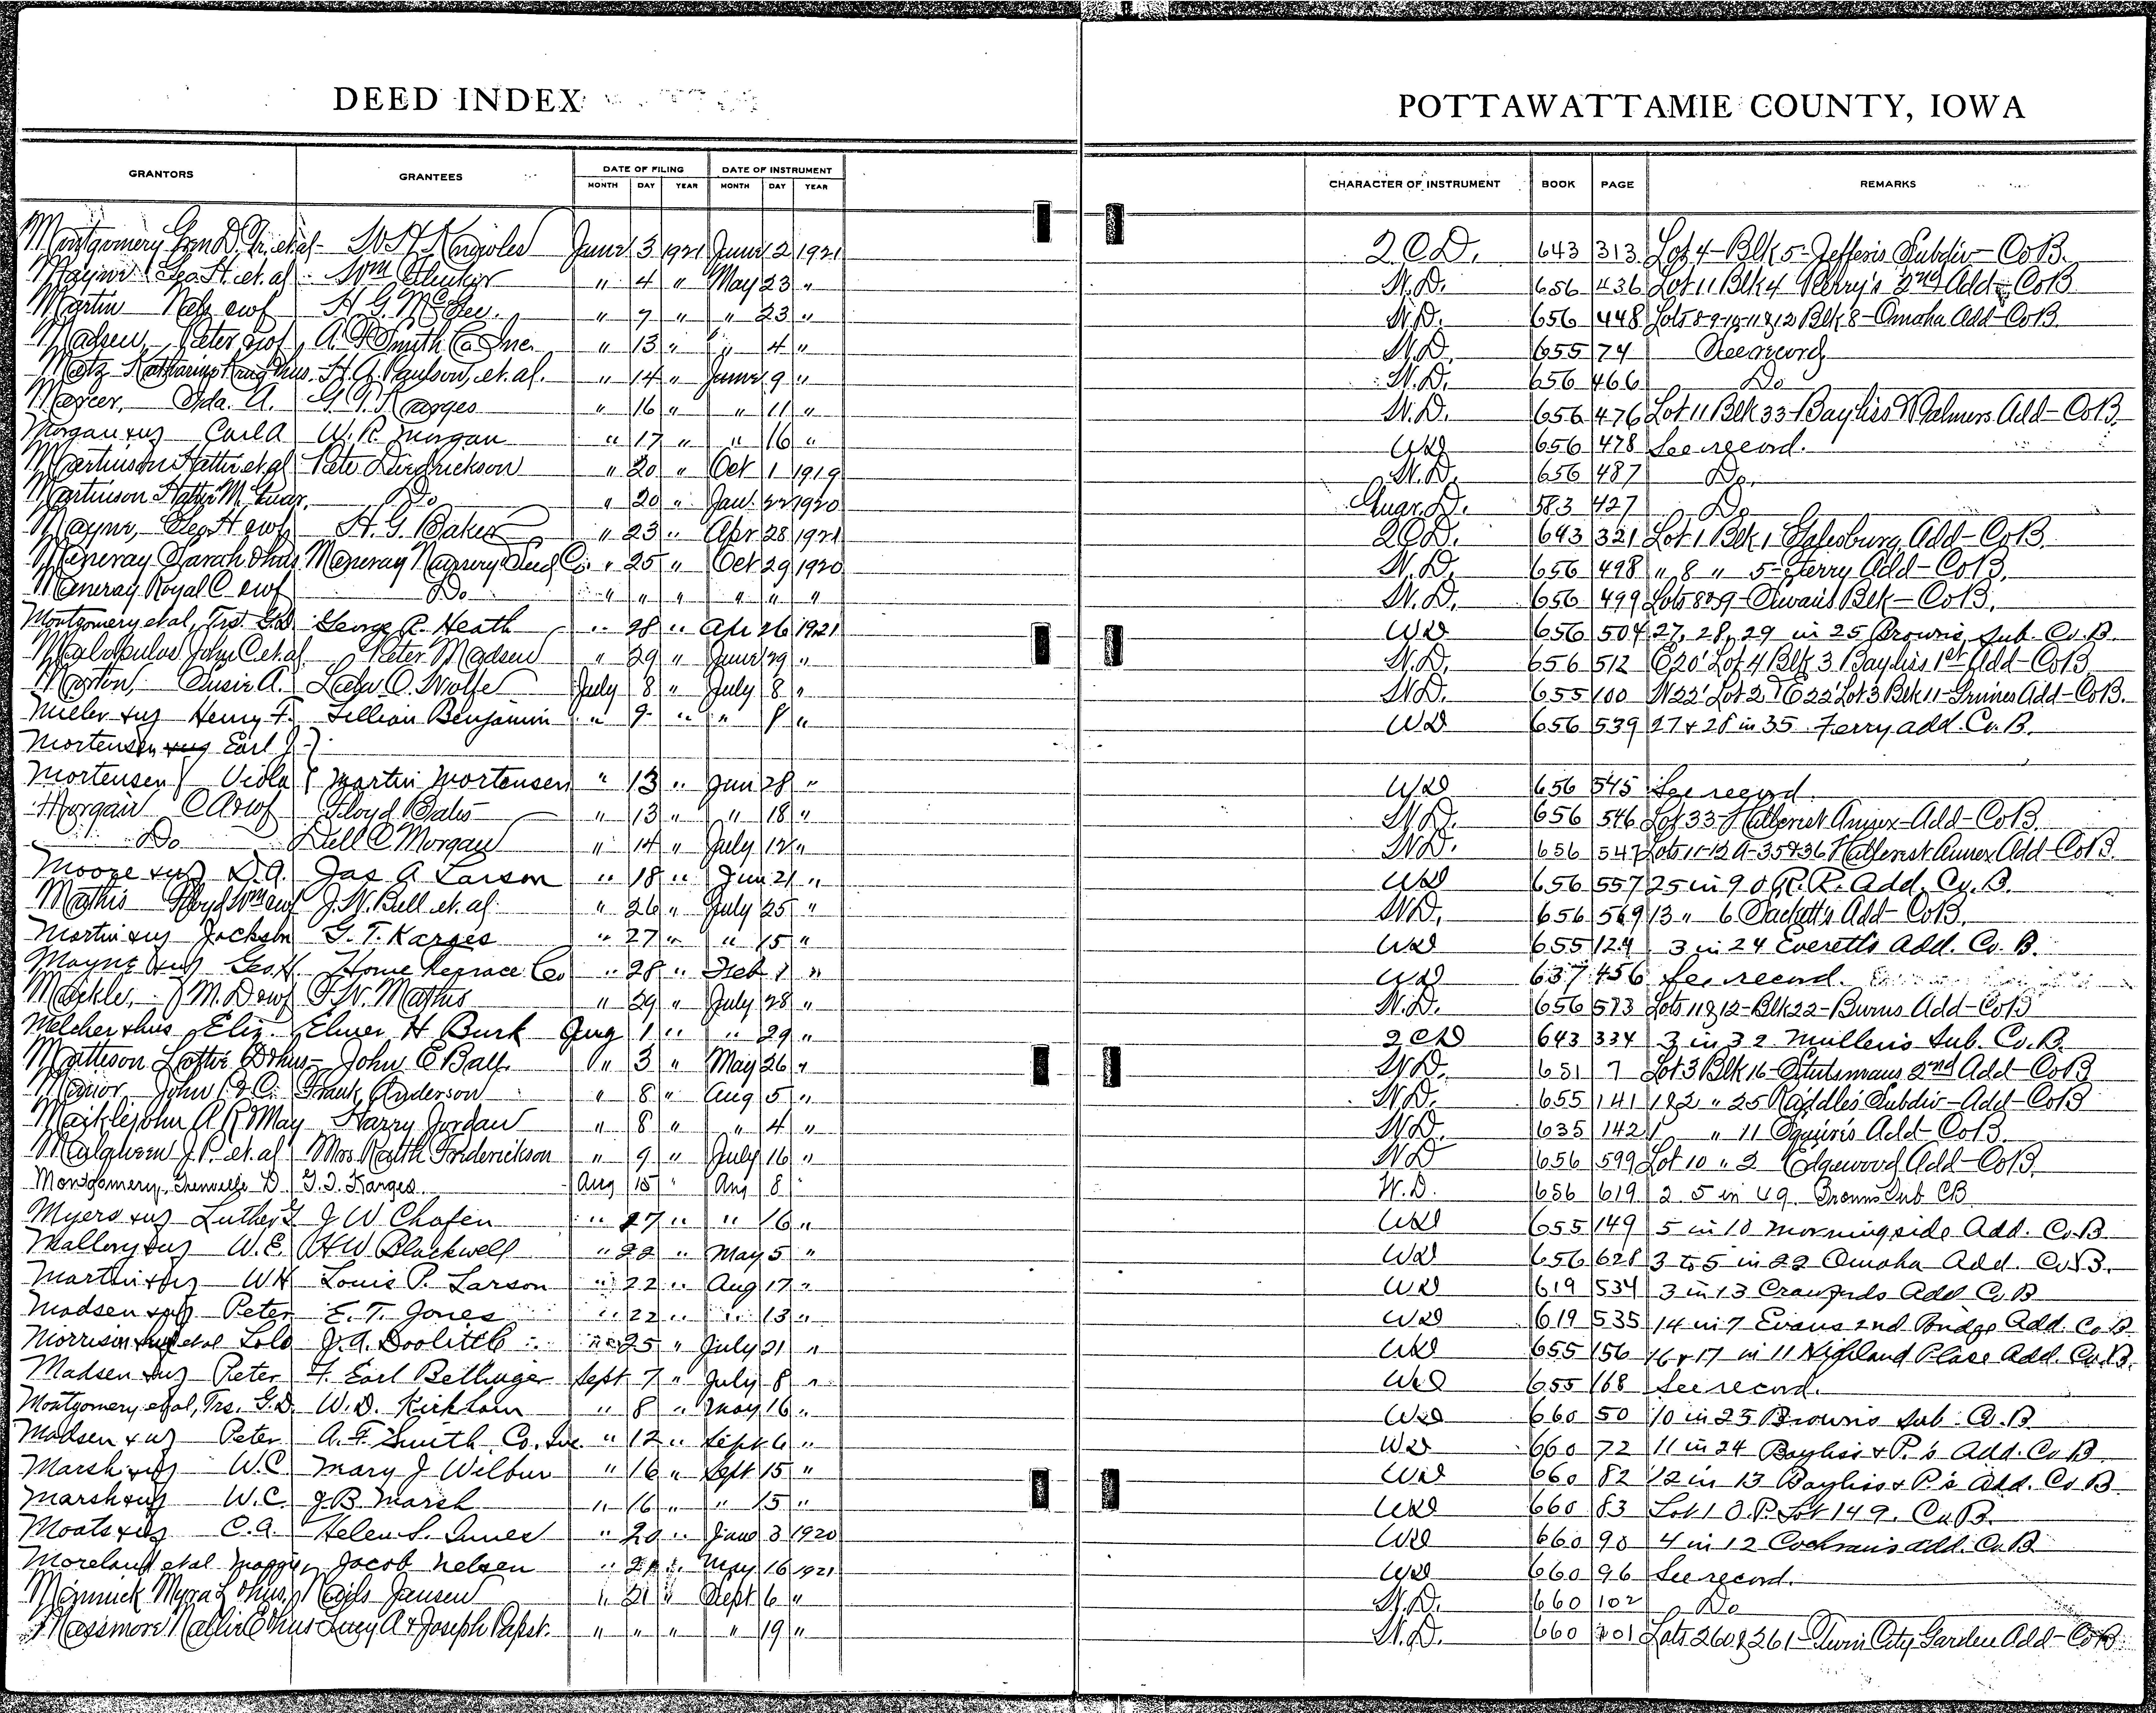 DEED INDEX
POTTAWATTAMIE COUNTY, IOWA
GRANTORS GRANTEES DATE OF FILING DATE OF INSTRUMENT CHARACTER OF INSTRUMENT BOOK PAGE REMARKS
MONTH DAY YEAR MONTH DAY YEAR
Montgomery Gren D. Tr. et al - W H Knowles June 3 1921 June 2 1921 2 C D. 643 313 Lot 4 - Blk 5 - Jefferis Subdiv - Co B.
Mayne Geo. H. et. al Wm " 4 " May 23 " W. D. 656 436 Lot 11 Blk 4 Perry's 2nd Add - Co B
Martin Nels & wf H G. McGee. " 7 " " 23 " W. D. 656 448 Lots 8-9-10-11 & 12 Blk 8 - Omaha Add - Co B
Madsen, Peter & wf A F Smith Co Inc. " 13 " " 4 " W. D. 655 74 See record
Motz Katharine Krug & hus. H. A. Paulson, et. al. " 14 " June 9 " W. D. 656 466 Do
Mercer, Ida. A. G. T. Karges " 16 " " 11 " W. D. 656 476 Lot 11 Blk 33 - Bayliss & Palmers Add - Co B
Morgan & ux Carl A W. R. Morgan " 17 " " 16 " WD 656 478 See record.
Martinson Hattie et al Pete Diedrickson " 20 " Oct 1 1919 W. D. 656 487 Do.
Martinson Hattie M. Guar. Do " 20 " Jan. 22 1920 Guar. D. 583 427 Do
Mayne, Geo H & wf H. G. Baker " 23 " Apr 28 1921 2 C D. 643 321 Lot 1 Blk 1 Galesburg Add - Co B.
Meneray Sarah & hus Meneray Nursery Seed Co. " 25 " Oct 29 1920 W. D. 656 498 " 8 " 5 - Ferry Add - Co B.
Meneray Royal C & wf Do " " " " " " W. D. 656 499 Lots 8 & 9 - Swan's Blk - Co B.
Montgomery et al, Trs. G.D. George R. Heath " 28 " Apr 26 1921 WD 656 504 27, 28, 29 in 25 Browns Sub. Co. B.
John C. et. al Peter Madsen " 29 " June 29 " W. D. 656 512 E 20' Lot 4 Blk 3 Bayliss 1st Add - Co B
Morton, Susie A. Lew. O. Wolfe July 8 " July 8 " W. D. 655 100 W 22' Lot 2 & E 22' Lot 3 Blk 11 - Grimes Add - Co B.
Miller & ux Henry F. Lillian Benjamin " 9 " " 8 " WD 656 539 27 & 28 in 35 Ferry add. Co. B.
Mortensen & ux Earl J }
Mortensen Viola } Martin Mortensen " 13 " Jun 28 " WD 656 545 See record
Morgan C A & wf Floyd Bates " 13 " " 18 " W. D. 656 546 Lot 33 - Hillcrest Annex - Add - Co B.
Do Dell C Morgan " 14 " July 12 " W. D. 656 547 Lots 11-12 A - 35 & 36 Hillcrest Annex Add - Co B.
Moore & ux D. A. Jas A Larson " 18 " Jun 21 " WD 656 557 25 in 9 R. R. Add. Co. B.
Mathis Floyd Wm & wf J. W. Bell et. al. " 26 " July 25 " W. D. 656 569 13 " 6 Sackett's Add - Co B.
Martin & ux Jackson G. T. Karges " 27 " " 15 " WD 655 124 3 in 24 Everetts Add. Co. B.
Mayne & ux Geo. H. Home Terrace Co " 28 " Feb 1 " WD 637 456 See record.
Mackle, M. D & wf F. W. Mathis " 29 " July 28 " W. D. 656 573 Lots 11 & 12 - Blk 22 - Burns Add - Co B
Melcher & hus Eliz. Elmer H Burk Aug 1 " " 29 " 2 CD 643 334 3 in 32 Mullens Sub. Co. B.
Matteson Lottie D & hus - John E Ball " 3 " May 26 " W. D. 651 7 Lot 3 Blk 16 - Stutsmans 2nd Add - Co B
Manor. John I. & C. Frank Anderson " 8 " Aug 5 " W. D. 655 141 1 & 2 " 25 Raddles Subdiv - Add - Co B
Maiklejohn A R May Harry Jordan " 8 " " 4 " W. D. 635 142 1 " 11 Squires Add - Co B.
Mulqueen J. P. et. al Mrs Ralth Friderickson " 9 " July 16 " W D 656 599 Lot 10 " 2 Edgewood Add - Co B.
Montgomery, Grenville D. G. T. Karges Aug 15 " Aug 8 " W. D. 656 619 25 in 49. Browns Sub CB
Myers & ux Luther J W Chafen " 17 " " 16 " WD 655 149 5 in 10 Morningside Add. Co. B
Mallory & ux W. E. H W Blackwell " 22 " May 5 " WD 656 628 3 to 5 in 22 Omaha Add. Co. B.
Martin & ux W H Louis P. Larson " 22 " Aug 17 " WD 619 534 3 in 13 Crawfords Add Co. B
Madsen & ux Peter E. T. Jones " 22 " " 13 " WD 619 535 14 in 7 Evans 2nd Bridge Add. Co B
Morrison & ux et al Lolo J. A. Doolittle " 25 " July 21 " WD 655 156 16 & 17 in 11 Highland Place Add. Co. B.
Madsen & ux Peter F. Earl Bellinger Sept 7 " July 8 " WD 655 168 See record.
Montgomery et al, Trs. G.D. W. D. Kirkham " 8 " May 16 " WD 660 50 10 in 25 Browns Sub. Co. B.
Madsen & ux Peter A. F. Smith Co. Inc. " 12 " Sept 6 " WD 660 72 11 in 24 Bayliss & P.'s Add. Co B
Marsh & ux W. C. Mary J Wilbur " 16 " Sept 15 " WD 660 82 12 in 13 Bayliss & P.'s Add. Co B
Marsh & ux W. C. J. B. Marsh " 16 " " 15 " WD 660 83 Lot 1 O. P. Lot 149. Co. B.
Moats & ux C. A. Helen S. Innes " 20 " June 3 1920 WD 660 90 4 in 12 Cochrans add. Co. B
Moreland et al Maggie Jacob Nelsen " 21 " May 16 1921 WD 660 96 See record.
Myra L & hus. Jansen " 21 " Sept 6 " W. D. 660 102 Do
Massmore Nallie E & hus Lucy A & Joseph Papst. " " " " 19 " W. D. 660 101 Lots 260 & 261 - Twin City Garden Add - Co B